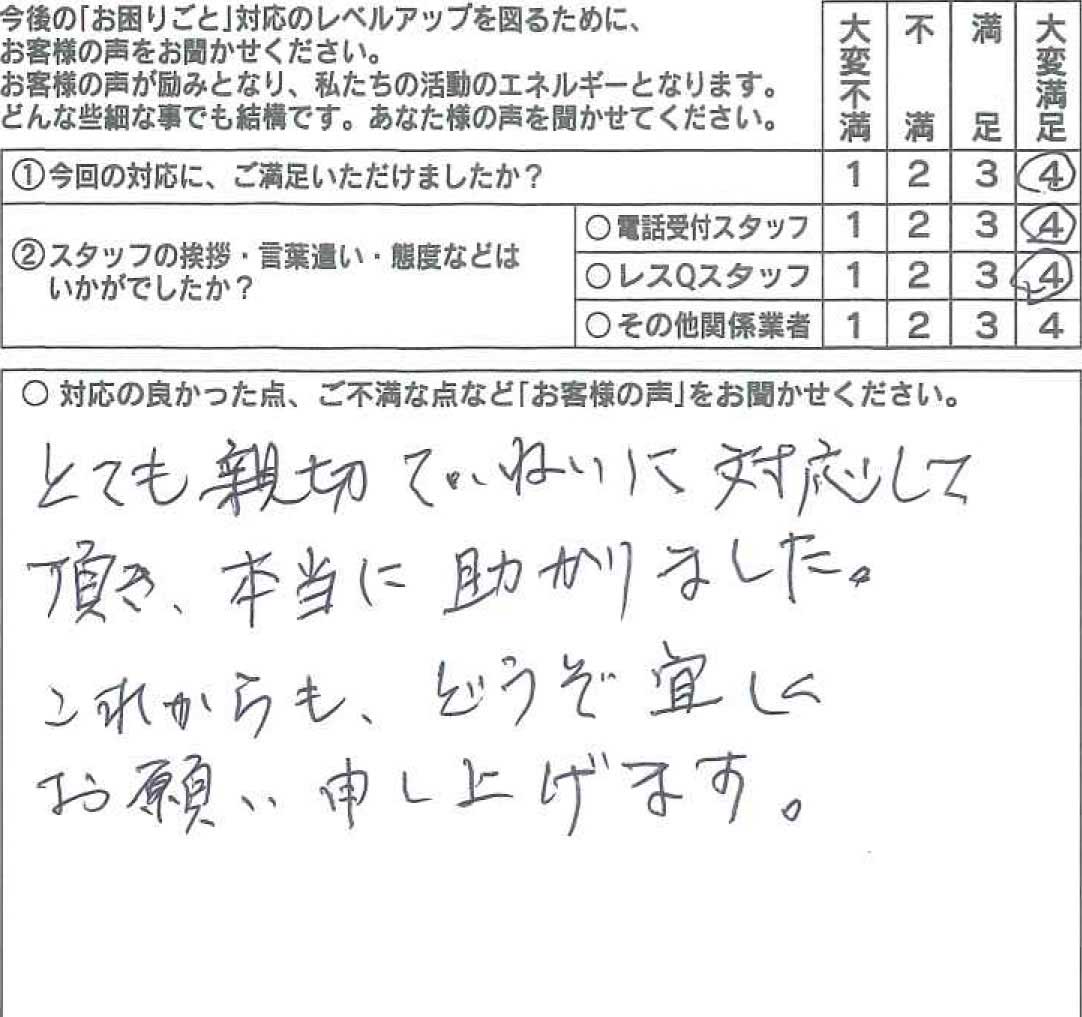 今後の「お困りごと」対応のレベルアップを図るために、
お客様の声をお聞かせください。
お客様の声が励みとなり、私たちの活動のエネルギーとなります。
どんな些細な事でも結構です。あなた様の声を聞かせてください。
大変不満 不満 満足 大変満足
①今回の対応に、ご満足いただけましたか? 1 2 3 4
②スタッフの挨拶・言葉遣い・態度などは
いかがでしたか?
○電話受付スタッフ 1 2 3 4
○レスQスタッフ 1 2 3 4
○その他関係業者 1 2 3 4
○ 対応の良かった点、ご不満な点など「お客様の声」をお聞かせください。
とても親切ていねいに対応して
頂き、本当に助かりました。
これからも、どうぞ宜しく
お願い申し上げます。